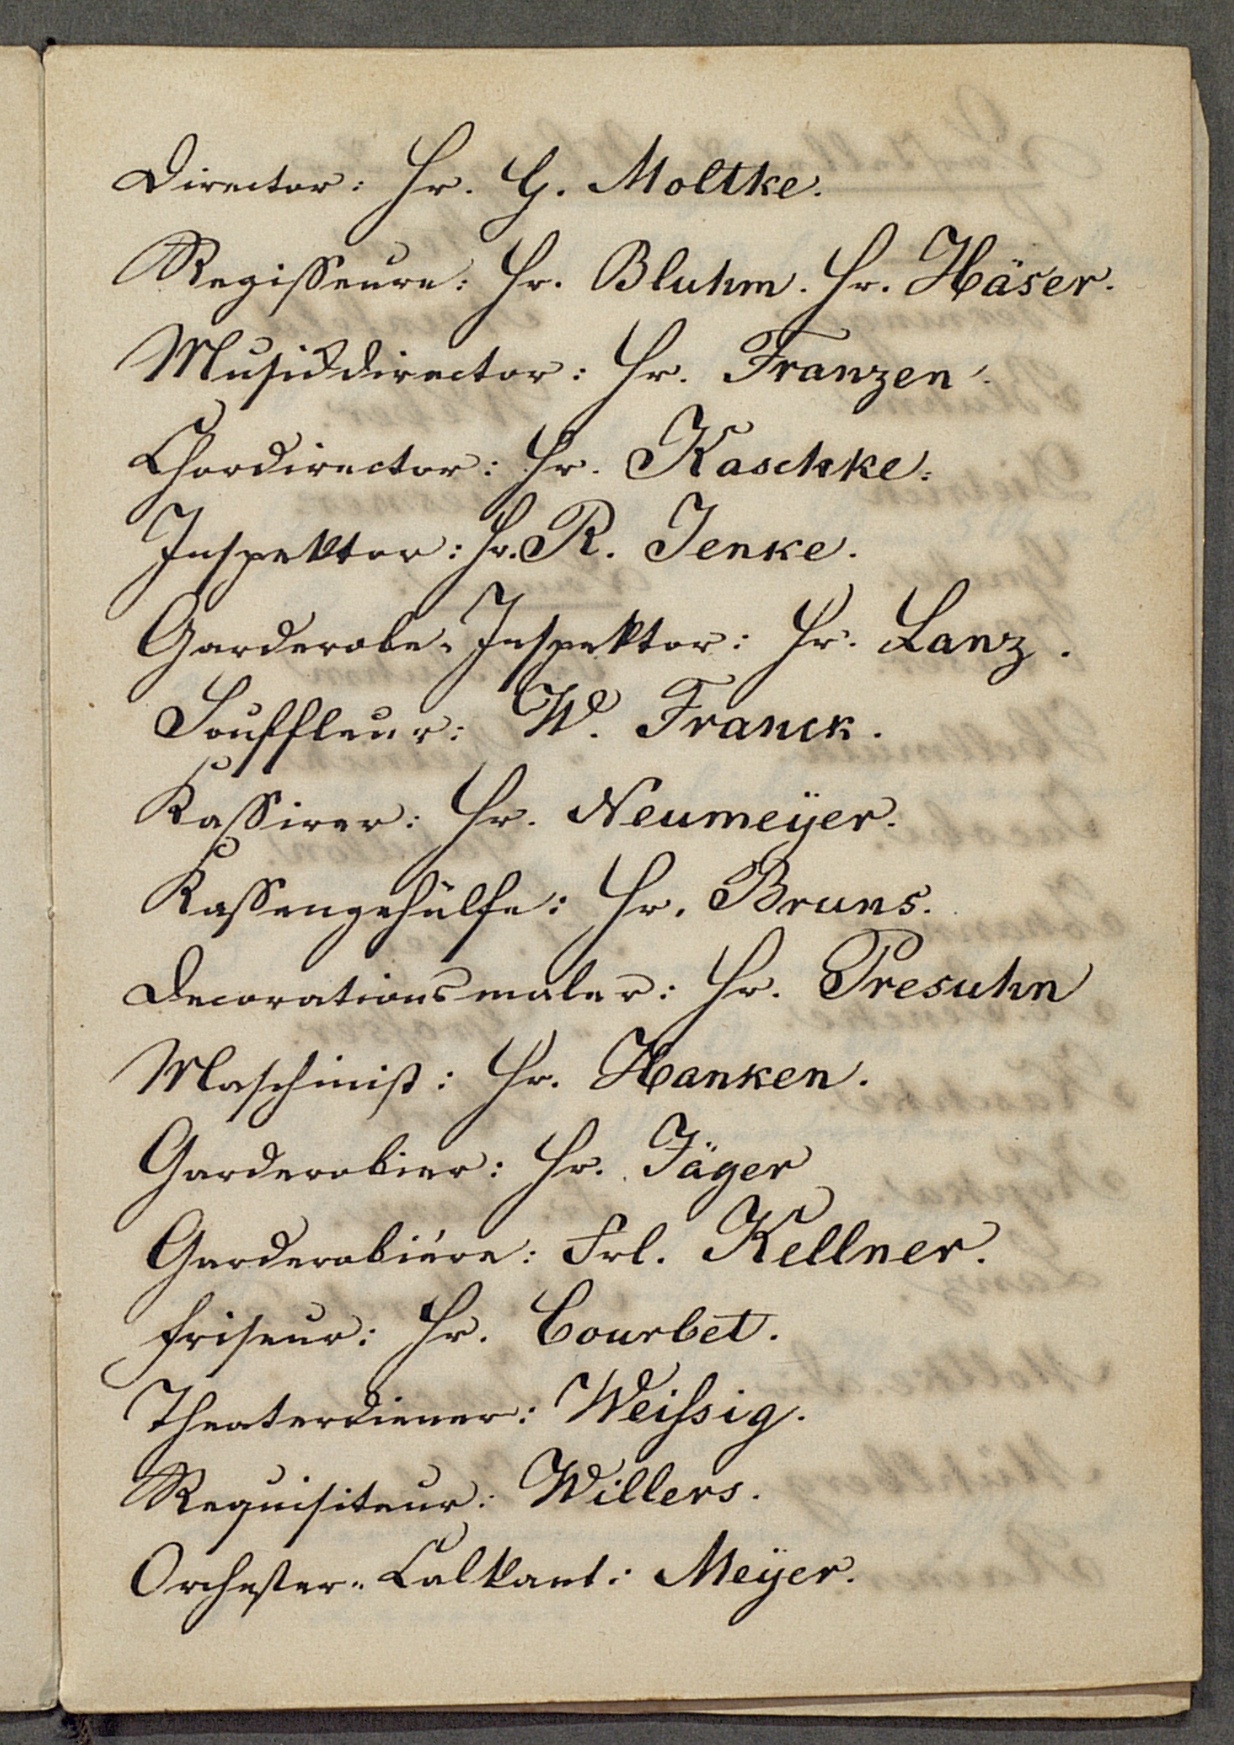 Director: Hr. G. Moltke.
Regisseure: Hr. Bluhm. Hr. Häser.
Musikdirector: Hr. Franzen.
Chordirector: Hr. Kaschke.
Inspektor: Hr. R. Jenke.
Garderobe-Inspektor: Hr. Lanz.
Souffleur: W. Franck.
Kassirer: Hr. Neumeÿer.
Kassengehülfe: Hr. Bruns.
Decorationsmaler: Hr. Presuhn
Maschinist: Hr. Hanken.
Garderobier: Hr. Jäger
Garderobiére: Frl. Kellner.
Friseur: Hr. Courbet.
Theaterdiener: Weißig.
Requisiteur: Willers.
Orchester-Calkant: Meÿer.